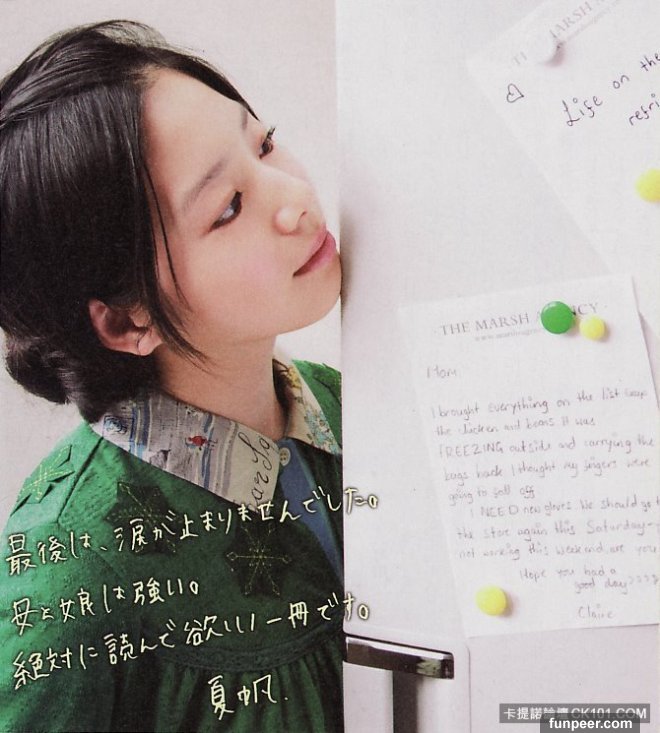 THE MARSH
Life on the
refri
THE MARSH AGENCY
Mom,
I brought everything on the list except
the chicken and beans. It was
FREEZING outside and carrying the
bags back I thought my fingers were
going to fall off.
I NEED new gloves. We should go to
the store again this Saturday-
not working this weekend, are you
Hope you had a
good day????
Claire
最後は、涙が止まりませんでした。
母と娘は強い。
絶対に読んで欲しい一冊です。
夏帆.
卡提諾論壇 CK101.COM
funpeer.com